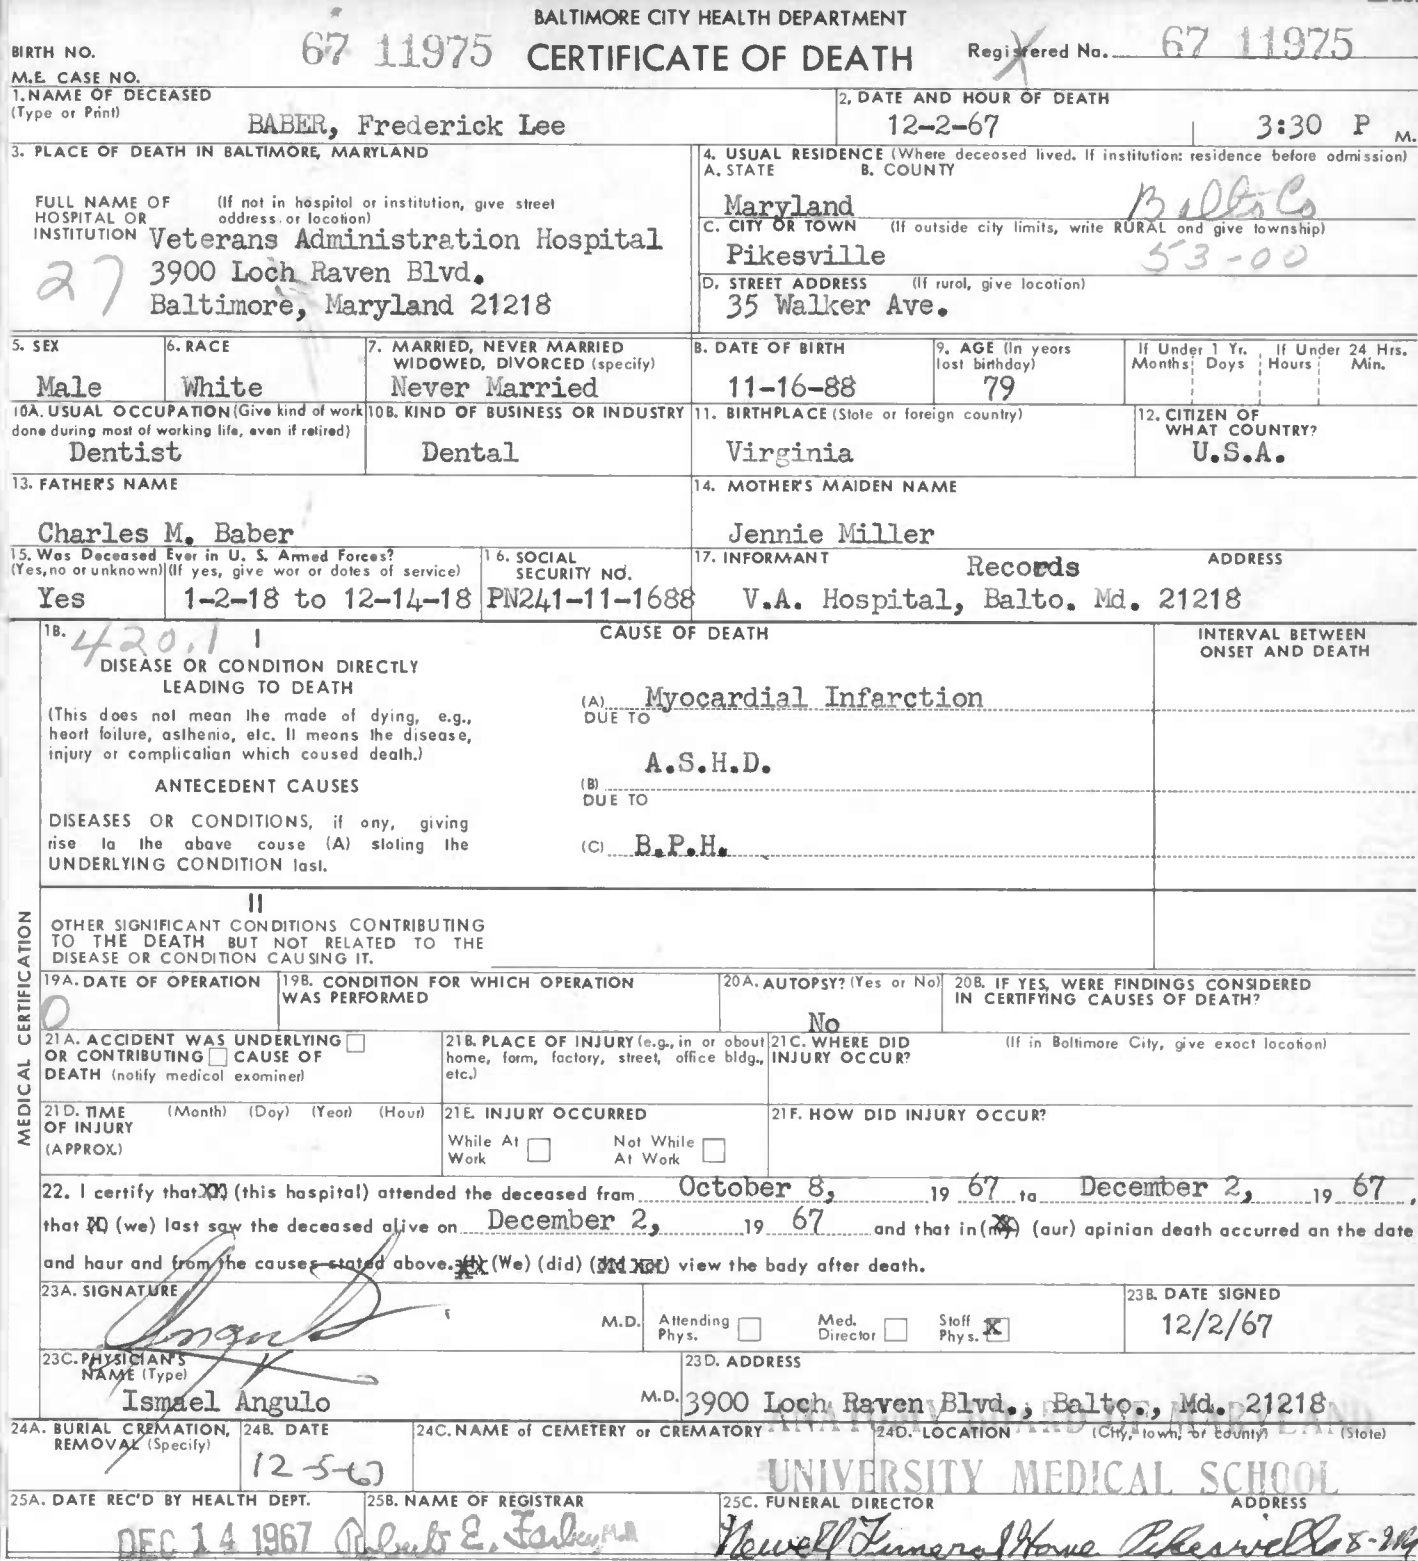 BALTIMORE CITY HEALTH DEPARTMENT
BIRTH NO. 67 11975 CERTIFICATE OF DEATH Registered No. 67 11975
M.E. CASE NO.
1. NAME OF DECEASED
(Type or Print) BABER, Frederick Lee
2. DATE AND HOUR OF DEATH
12-2-67 3:30 P M.
3. PLACE OF DEATH IN BALTIMORE, MARYLAND
FULL NAME OF HOSPITAL OR INSTITUTION (If not in hospital or institution, give street address or location)
Veterans Administration Hospital
27 3900 Loch Raven Blvd.
Baltimore, Maryland 21218
4. USUAL RESIDENCE (Where deceased lived. If institution: residence before admission)
A. STATE B. COUNTY
Maryland Balto Co
C. CITY OR TOWN (If outside city limits, write RURAL and give township)
Pikesville 53-00
D. STREET ADDRESS (If rural, give location)
35 Walker Ave.
5. SEX
Male
6. RACE
White
7. MARRIED, NEVER MARRIED
WIDOWED, DIVORCED (specify)
Never Married
8. DATE OF BIRTH
11-16-88
9. AGE (In years
last birthday)
79
If Under 1 Yr. If Under 24 Hrs.
Months Days Hours Min.
10A. USUAL OCCUPATION (Give kind of work
done during most of working life, even if retired)
Dentist
10B. KIND OF BUSINESS OR INDUSTRY
Dental
11. BIRTHPLACE (State or foreign country)
Virginia
12. CITIZEN OF
WHAT COUNTRY?
U.S.A.
13. FATHER'S NAME
Charles M. Baber
14. MOTHER'S MAIDEN NAME
Jennie Miller
15. Was Deceased Ever in U. S. Armed Forces?
(Yes, no or unknown) (If yes, give war or dates of service)
Yes 1-2-18 to 12-14-18
16. SOCIAL
SECURITY NO.
PN241-11-1688
17. INFORMANT Records ADDRESS
V.A. Hospital, Balto. Md. 21218
MEDICAL CERTIFICATION
18. 420.1 I
CAUSE OF DEATH
INTERVAL BETWEEN
ONSET AND DEATH
DISEASE OR CONDITION DIRECTLY
LEADING TO DEATH
(This does not mean the mode of dying, e.g.,
heart failure, asthenia, etc. It means the disease,
injury or complication which caused death.)
(A) Myocardial Infarction
DUE TO
ANTECEDENT CAUSES
A.S.H.D.
(B)
DUE TO
DISEASES OR CONDITIONS, if any, giving
rise to the above cause (A) stating the
UNDERLYING CONDITION last.
(C) B.P.H.
II
OTHER SIGNIFICANT CONDITIONS CONTRIBUTING
TO THE DEATH BUT NOT RELATED TO THE
DISEASE OR CONDITION CAUSING IT.
19A. DATE OF OPERATION
0
19B. CONDITION FOR WHICH OPERATION
WAS PERFORMED
20A. AUTOPSY? (Yes or No)
No
20B. IF YES, WERE FINDINGS CONSIDERED
IN CERTIFYING CAUSES OF DEATH?
21A. ACCIDENT WAS UNDERLYING
OR CONTRIBUTING CAUSE OF
DEATH (notify medical examiner)
21B. PLACE OF INJURY (e.g., in or about
home, farm, factory, street, office bldg.,
etc.)
21C. WHERE DID (If in Baltimore City, give exact location)
INJURY OCCUR?
21D. TIME (Month) (Day) (Year) (Hour)
OF INJURY
(APPROX.)
21E. INJURY OCCURRED
While At Work Not While At Work
21F. HOW DID INJURY OCCUR?
22. I certify that (this hospital) attended the deceased from October 8, 19 67 to December 2, 19 67,
that (we) last saw the deceased alive on December 2, 19 67 and that in (my) (our) opinion death accurred on the date
and hour and from the causes stated above. (We) (did) (did not) view the body after death.
23A. SIGNATURE
Angulo
M.D. Attending Phys. Med. Director Staff Phys. X
23B. DATE SIGNED
12/2/67
23C. PHYSICIAN'S
NAME (Type)
Ismael Angulo M.D.
23D. ADDRESS
3900 Loch Raven Blvd., Balto., Md. 21218
ANATOMY BOARD OF MARYLAND
24A. BURIAL CREMATION,
REMOVAL (Specify)
24B. DATE
12-5-67
24C. NAME of CEMETERY or CREMATORY
24D. LOCATION (City, town, or county) (State)
UNIVERSITY MEDICAL SCHOOL
25A. DATE REC'D BY HEALTH DEPT.
DEC 14 1967
25B. NAME OF REGISTRAR
Robert E. Farber M.D.
25C. FUNERAL DIRECTOR ADDRESS
Newell Funeral Home Pikesville 8-Md